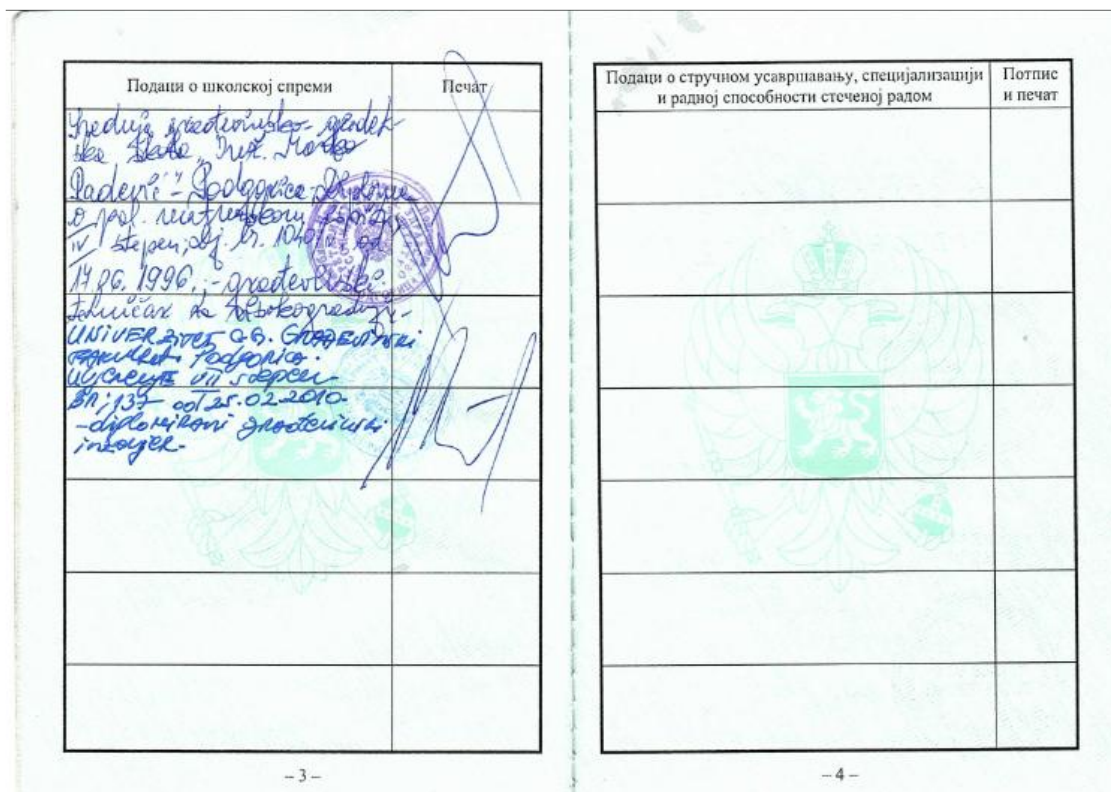 Подаци о школској спреми
Печат
Srednja građevinsko-geodet-
ska škola „Inž. Marko
Radević“ - Podgorica - Diploma
o pol. maturskom ispitu
IV stepen, dj. br. od
17.06.1996.; - građevinski
tehničar za visokogradnju -
UNIVERZITET C.G. GRAĐEVINSKI
FAKULTET Podgorica.
VII stepen -
BR; 137 od 25.02.2010.
- diplomirani građevinski
inženjer -
– 3 –
Подаци о стручном усавршавању, специјализацији
и радној способности стеченој радом
Потпис
и печат
– 4 –